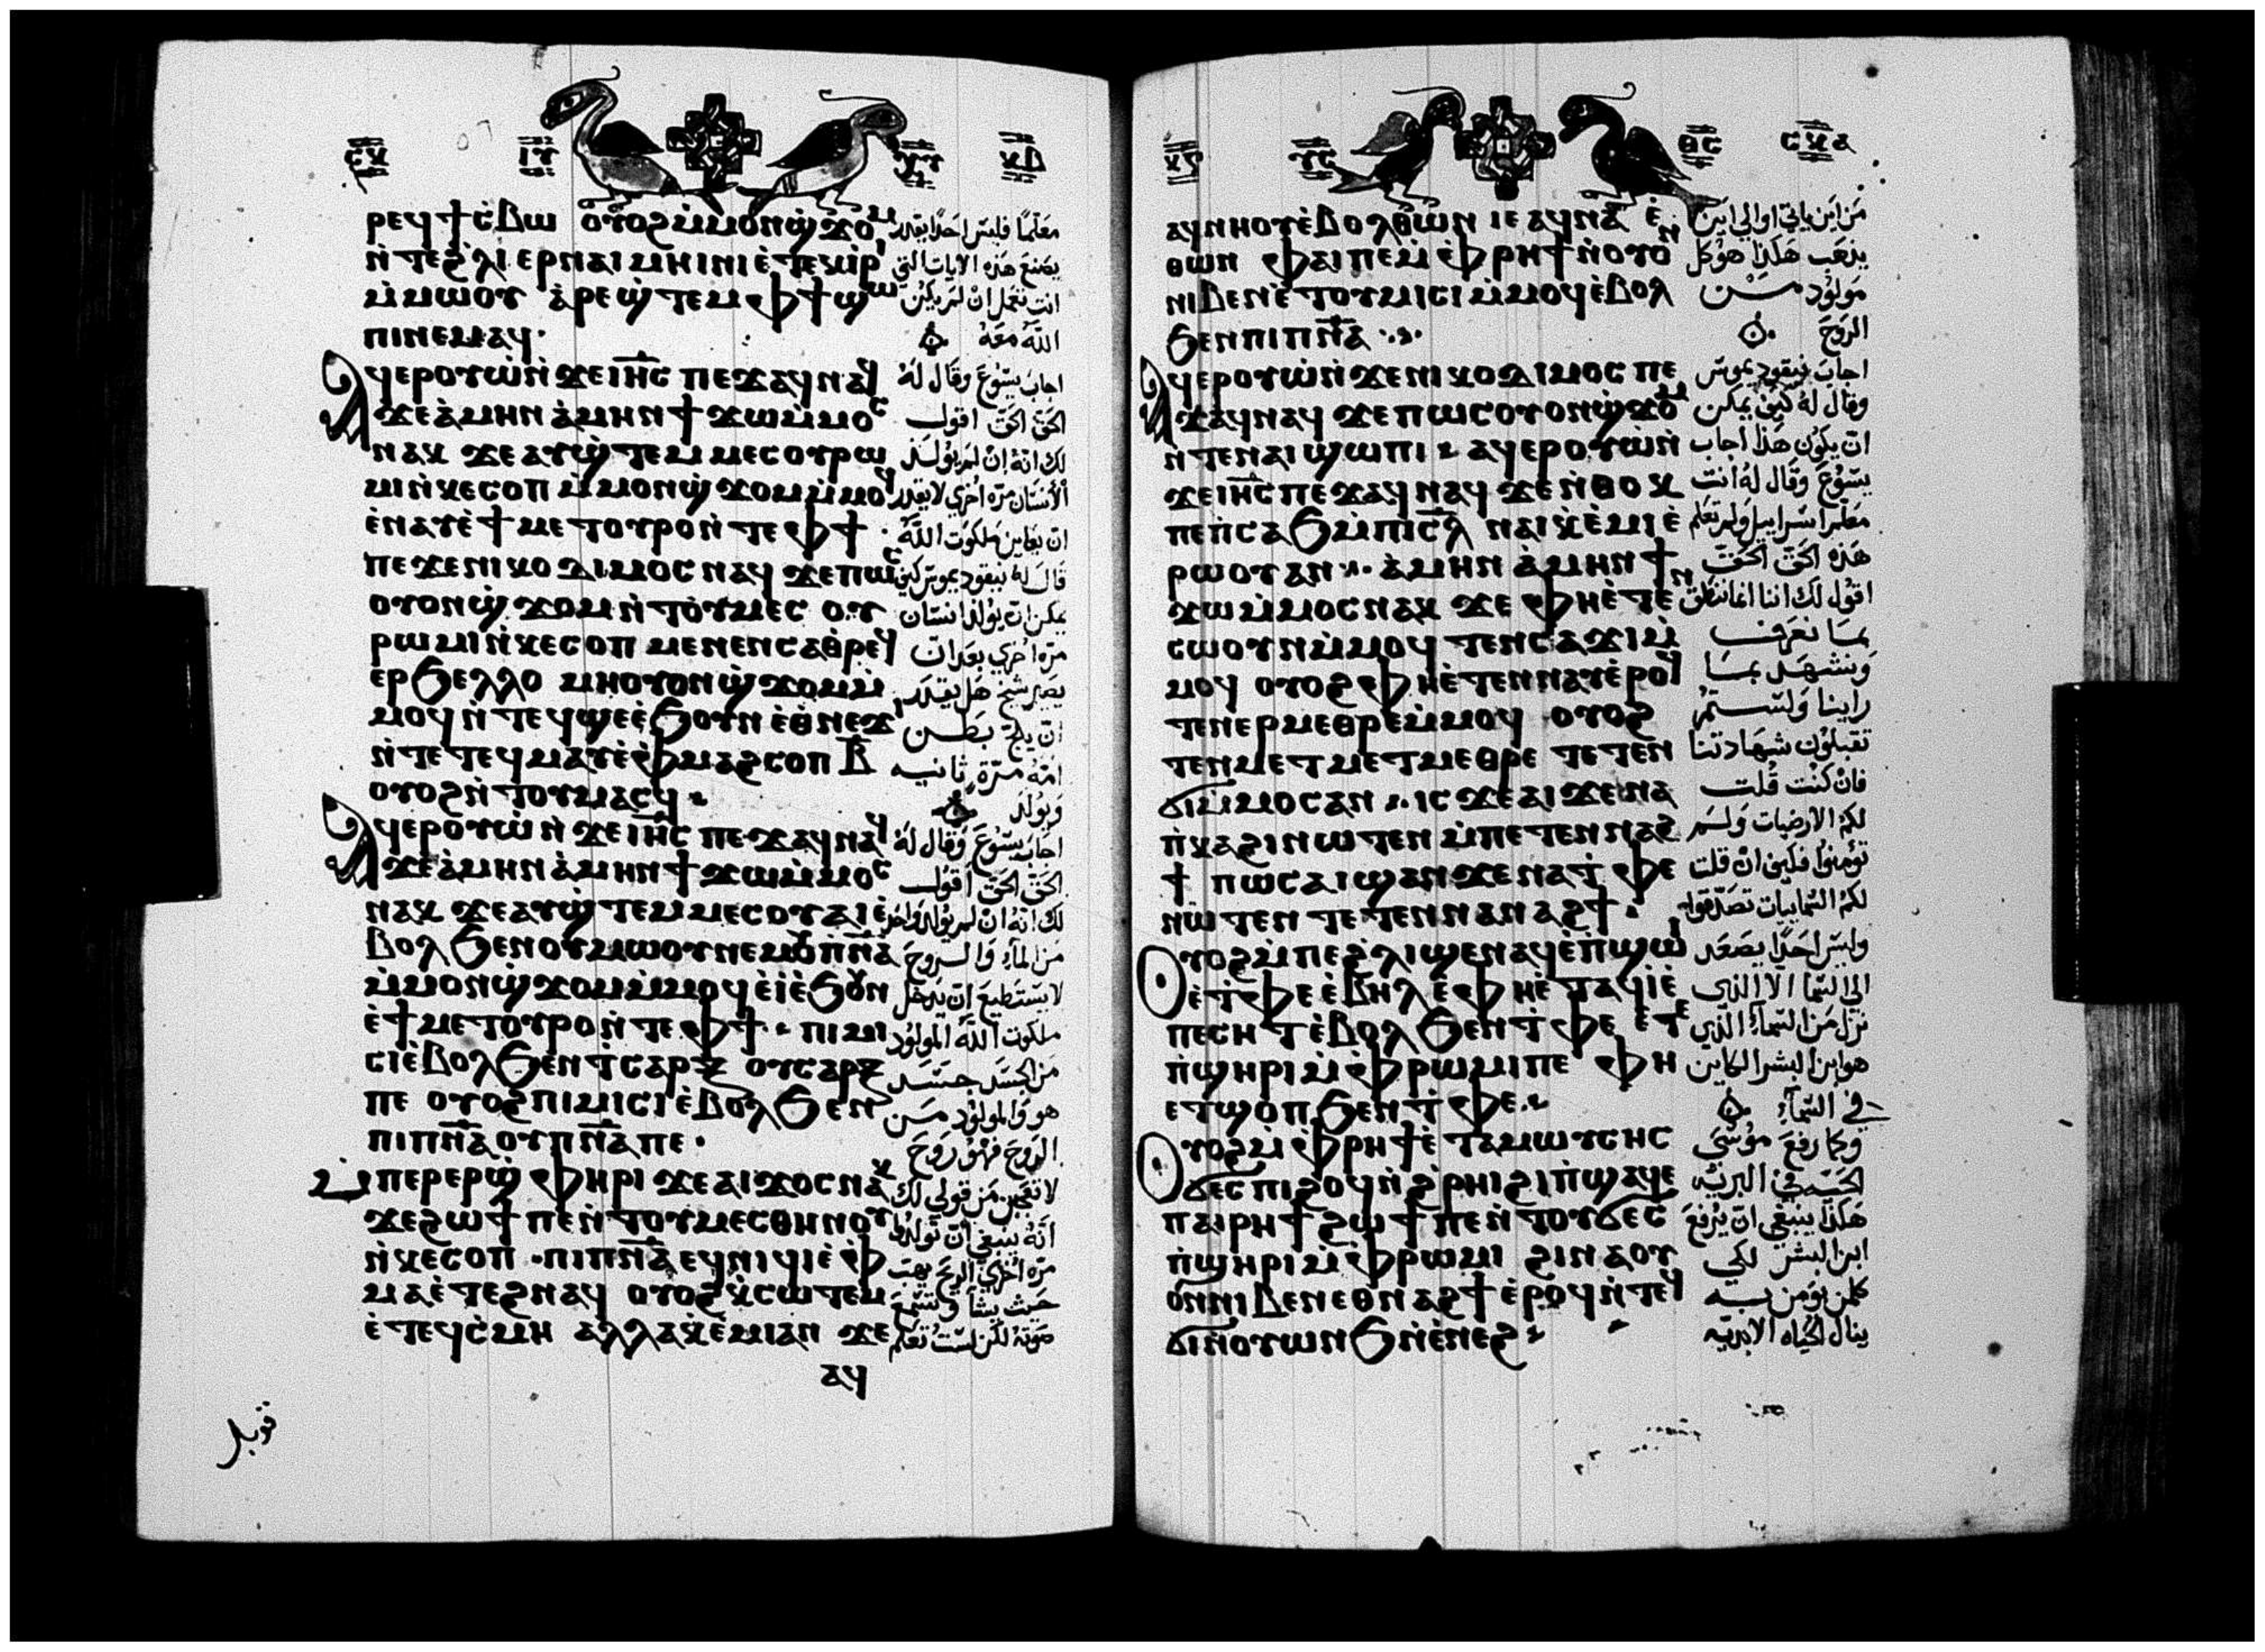 ⲣⲉϥϯⲥ̀ⲃⲱ ⲟⲩⲟϩ ⲙ̀ⲙⲟⲛϣ̀ϫⲟⲙ
ⲛ̀ⲧⲉϩ̀ⲗⲓ ⲉⲣⲛⲁⲓⲙⲏⲓⲛⲓ ⲉ̀ⲧⲉⲕⲓⲣⲓ
ⲙ̀ⲙⲱⲟⲩ ⲁ̀ⲣⲉϣ̀ⲧⲉⲙⲫϯϣⲱ
ⲡⲓⲛⲉⲙⲁϥ·
ⲁϥⲉⲣⲟⲩⲱ̀ⲛ̀ϫⲉⲓⲏ̅ⲥ ⲡⲉϫⲁϥⲛⲁϥ
ϫⲉⲁ̀ⲙⲏⲛ ⲁ̀ⲙⲏⲛ ϯϫⲱⲙ̀ⲙⲟⲥ
ⲛⲁⲕ ϫⲉⲁⲩϣ̀ⲧⲉⲙⲙⲉⲥⲟⲩⲣⲱ
ⲙⲓⲛ̀ⲕⲉⲥⲟⲡ ⲙ̀ⲙⲟⲛϣ̀ϫⲟⲙⲙ̀ⲙⲟϥ
ⲉ̀ⲛⲁⲩⲉ̀ϯⲙⲉⲧⲟⲩⲣⲟⲛ̀ⲧⲉⲫϯ·
ⲡⲉϫⲉⲛⲓⲕⲟⲇⲓⲙⲟⲥ ⲛⲁϥ ϫⲉⲡⲱⲥ
ⲟⲩⲟⲛϣ̀ϫⲟⲙ ⲛ̀ⲧⲟⲩⲙⲉⲥ ⲟⲩ
ⲣⲱⲙⲓⲛ̀ⲕⲉⲥⲟⲡ ⲙⲉⲛⲉⲛⲥⲁⲑⲣⲉϥ
ⲉⲣϧⲉⲗⲗⲟ ⲙⲏⲟⲩⲟⲛϣ̀ϫⲟⲙⲙ̀
ⲙⲟϥ ⲛ̀ⲧⲉϥϣⲉⲉ̀ϧⲟⲩⲛ ⲉ̀ⲑⲛⲉϫⲓ
ⲛ̀ⲧⲉⲧⲉϥⲙⲁⲩⲉ̀ⲫⲙⲁϩⲥⲟⲡ ⲃ̅
ⲟⲩⲟϩ ⲛ̀ⲧⲟⲩⲙⲁⲥϥ
ⲁϥⲉⲣⲟⲩⲱ̀ⲛ̀ϫⲉⲓⲏ̅ⲥ ⲡⲉϫⲁϥⲛⲁϥ
ϫⲉⲁ̀ⲙⲏⲛ ⲁ̀ⲙⲏⲛ ϯϫⲱⲙ̀ⲙⲟⲥ
ⲛⲁⲕ ϫⲉⲁⲩϣ̀ⲧⲉⲙⲙⲉⲥⲟⲩⲁⲓⲉ̀
ⲃⲟⲗϧⲉⲛⲟⲩⲙⲱⲟⲩⲛⲉⲙⲟⲩⲡⲛ̅ⲁ
ⲙ̀ⲙⲟⲛϣ̀ϫⲟⲙⲙ̀ⲙⲟϥⲉ̀ⲓⲉ̀ϧⲟⲩⲛ
ⲉ̀ϯⲙⲉⲧⲟⲩⲣⲟⲛ̀ⲧⲉⲫϯ· ⲡⲓⲙⲓ
ⲥⲓⲉ̀ⲃⲟⲗϧⲉⲛϯⲥⲁⲣⲝ ⲟⲩⲥⲁⲣⲝ
ⲡⲉ ⲟⲩⲟϩ ⲡⲓⲙⲓⲥⲓⲉ̀ⲃⲟⲗϧⲉⲛ
ⲡⲓⲡⲛ̅ⲁ ⲟⲩⲡⲛ̅ⲁⲡⲉ·
ⲙ̀ⲡⲉⲣⲉⲣϣ̀ⲫⲏⲣⲓ ϫⲉⲁⲓϫⲟⲥⲛⲁⲕ
ϫⲉϩⲱϯⲡⲉⲛ̀ⲧⲟⲩⲙⲉⲥⲑⲏⲛⲟⲩ
ⲛ̀ⲕⲉⲥⲟⲡ· ⲡⲓⲡⲛ̅ⲁⲉϥⲛⲓϥⲓⲉ̀ⲫ
ⲙⲁⲉ̀ⲧⲉϩⲛⲁϥ ⲟⲩⲟϩ ⲕ̀ⲥⲱⲧⲉⲙ
ⲉ̀ⲧⲉϥⲥ̀ⲙⲏ ⲁⲗⲗⲁⲕ̀ⲉ̀ⲙⲓⲁⲛ ϫⲉ
ⲁϥ
معلمًا فليس احدًا يقدر
يصنع هذه الايات التي
انت تعمل ان لم يكن
الله معه
اجاب يسوع وقال له
الحق الحق اقول
لك انه ان لم يولد
الانسان مرة اخري لا يقدر
ان يعاين ملكوت الله
قال له نيقوديموس كيف
يمكن ان يولد انسان
مرة اخري بعد ان
يصير شيخ هل يقدر
ان يلج بطن
امه مرة ثانيه
ويولد
اجاب يسوع وقال له
الحق الحق اقول
لك انه ان لم يولد واحد
من الماء والروح
لا يستطيع ان يدخل
ملكوت الله المولود
من الجسد جسد
هو والمولود من
الروح فهو روح
لا تعجبن من قولي لك
انه ينبغي ان تولدوا
مرة اخري الروح يهب
حيث يشآ وتسمع
صوته لكن لست تعلم
قوبل
ⲁϥⲛⲏⲟⲩⲉ̀ⲃⲟⲗⲑⲱⲛ ⲓⲉ ⲁϥⲛⲁ ⲉ̀
ⲑⲱⲛ ⲫⲁⲓⲡⲉⲙ̀ⲫⲣⲏϯⲛ̀ⲟⲩⲟⲛ
ⲛⲓⲃⲉⲛⲉ̀ⲧⲟⲩⲙⲓⲥⲓⲙ̀ⲙⲟϥⲉ̀ⲃⲟⲗ
ϧⲉⲛⲡⲓⲡⲛ̅ⲁ
ⲁϥⲉⲣⲟⲩⲱ̀ⲛ̀ϫⲉⲛⲓⲕⲟⲇⲓⲙⲟⲥ ⲡⲉ
ϫⲁϥⲛⲁϥ ϫⲉⲡⲱⲥⲟⲩⲟⲛϣ̀ϫⲟⲙ
ⲛ̀ⲧⲉⲛⲁⲓϣⲱⲡⲓ ⲁϥⲉⲣⲟⲩⲱ̀ⲛ̀
ϫⲉⲓⲏ̅ⲥⲡⲉϫⲁϥⲛⲁϥ ϫⲉⲛ̀ⲑⲟⲕ
ⲡⲉⲡ̀ⲥⲁϧⲙ̀ⲡⲓⲥ̅ⲗ ⲛⲁⲓⲕ̀ⲉ̀ⲙⲓⲉ̀
ⲣⲱⲟⲩⲁⲛ ⲁ̀ⲙⲏⲛ ⲁ̀ⲙⲏⲛ ϯ
ϫⲱⲙ̀ⲙⲟⲥⲛⲁⲕ ϫⲉ ⲫⲏⲉ̀ⲧⲉⲛ
ⲥⲱⲟⲩⲛⲙ̀ⲙⲟϥ ⲧⲉⲛⲥⲁϫⲓⲙ̀
ⲙⲟϥ ⲟⲩⲟϩ ⲫⲏⲉ̀ⲧⲉⲛⲛⲁⲩⲉ̀ⲣⲟϥ
ⲧⲉⲛⲉⲣⲙⲉⲑⲣⲉⲙ̀ⲙⲟϥ ⲟⲩⲟϩ
ⲧⲉⲛⲙⲉⲧⲙⲉⲧⲙⲉⲑⲣⲉ ⲧⲉⲧⲉⲛ
ϭⲓⲙ̀ⲙⲟⲥⲁⲛ ⲓⲥϫⲉⲁⲓϫⲉⲛⲁ
ⲡ̀ⲕⲁϩⲓⲛⲱⲧⲉⲛ ⲙ̀ⲡⲉⲧⲉⲛⲛⲁϩ
ϯ ⲡⲱⲥⲁⲓϣⲁⲛϫⲉⲛⲁⲧ̀ⲫⲉ
ⲛⲱⲧⲉⲛ ⲧⲉⲧⲉⲛⲛⲁⲛⲁϩϯ
ⲟⲩⲟϩ ⲙ̀ⲡⲉϩ̀ⲗⲓϣⲉⲛⲁϥⲉ̀ⲡ̀ϣⲱⲓ
ⲉ̀ⲧ̀ⲫⲉ ⲉ̀ⲃⲏⲗ ⲉ̀ⲫⲏⲉ̀ⲧⲁϥⲓⲉ̀
ⲡⲉⲥⲏⲧⲉ̀ⲃⲟⲗϧⲉⲛⲧ̀ⲫⲉ ⲉ̀ⲧⲉ
ⲡ̀ϣⲏⲣⲓⲙ̀ⲫⲣⲱⲙⲓⲡⲉ ⲫⲏ
ⲉⲧϣⲟⲡϧⲉⲛⲧ̀ⲫⲉ
ⲟⲩⲟϩ ⲙ̀ⲫⲣⲏϯⲉ̀ⲧⲁⲙⲱⲩⲥⲏⲥ
ϭⲉⲥⲡⲓϩⲟϥⲛ̀ϩ̀ⲣⲏⲓϩⲓⲡ̀ϣⲁϥⲉ
ⲡⲁⲓⲣⲏϯ ϩⲱϯⲡⲉⲛ̀ⲧⲟⲩϭⲉⲥ
ⲡ̀ϣⲏⲣⲓⲙ̀ⲫⲣⲱⲙⲓ ϩⲓⲛⲁⲟⲩ
ⲟⲛⲛⲓⲃⲉⲛⲉⲑⲛⲁϩϯⲉ̀ⲣⲟϥⲛ̀ⲧⲉϥ
ϭⲓⲛ̀ⲟⲩⲱⲛϧⲛ̀ⲉ̀ⲛⲉϩ
من اين ياتي او الي اين
يذهب هكذا هو كل
مولود من
الروح
اجاب نيقوديموس
وقال له كيف يمكن
ان يكون هذا اجاب
يسوع وقال له انت
معلم اسراييل ولم تعلم
هذه الحق الحق
اقول لك اننا انما ننطق
بما نعرف
ونشهد بما
راينا ولستم
تقبلون شهادتنا
فان كنت قلت
لكم الارضيات ولم
تومنوا فكيف ان قلت
لكم السماييات تصدقوا
وليس احدًا يصعد
الي السما الا الذي
نزل من السماء الذي
هو ابن البشر الكاين
في السماء
وكما رفع موسي
الحية في البرية
هكذا ينبغي ان يرفع
ابن البشر لكي
كلمن يومن به
ينال الحياه الابدية